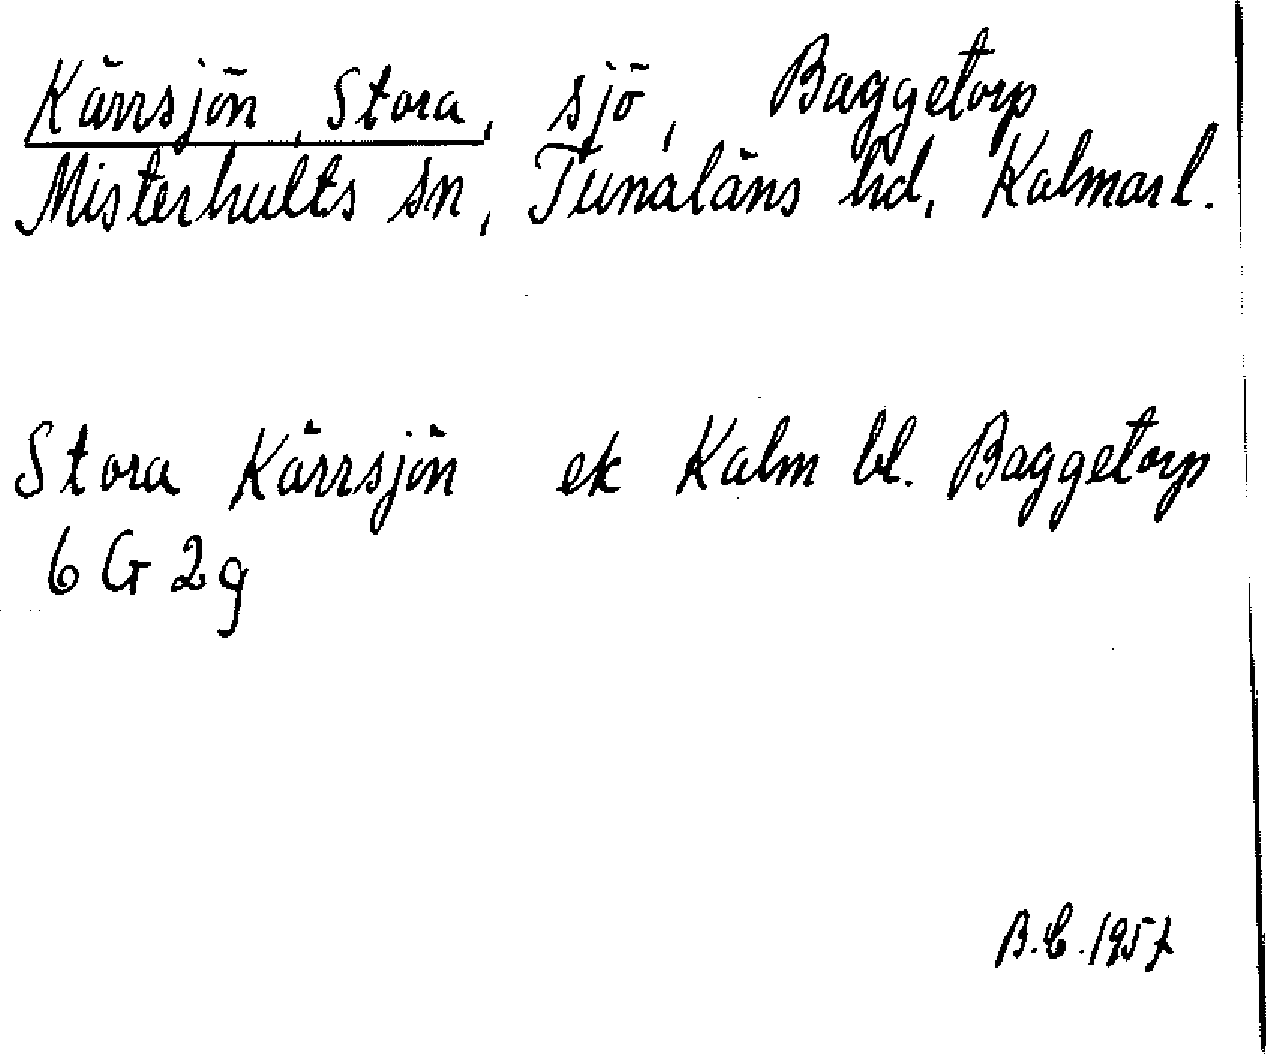 Kärrsjön, Stora, sjö, Baggetorp
Misterhults sn, Tunaläns hd, Kalmar l.
Stora Kärrsjön ek Kalm bl. Baggetorp
6 G 2g
B.C. 1957